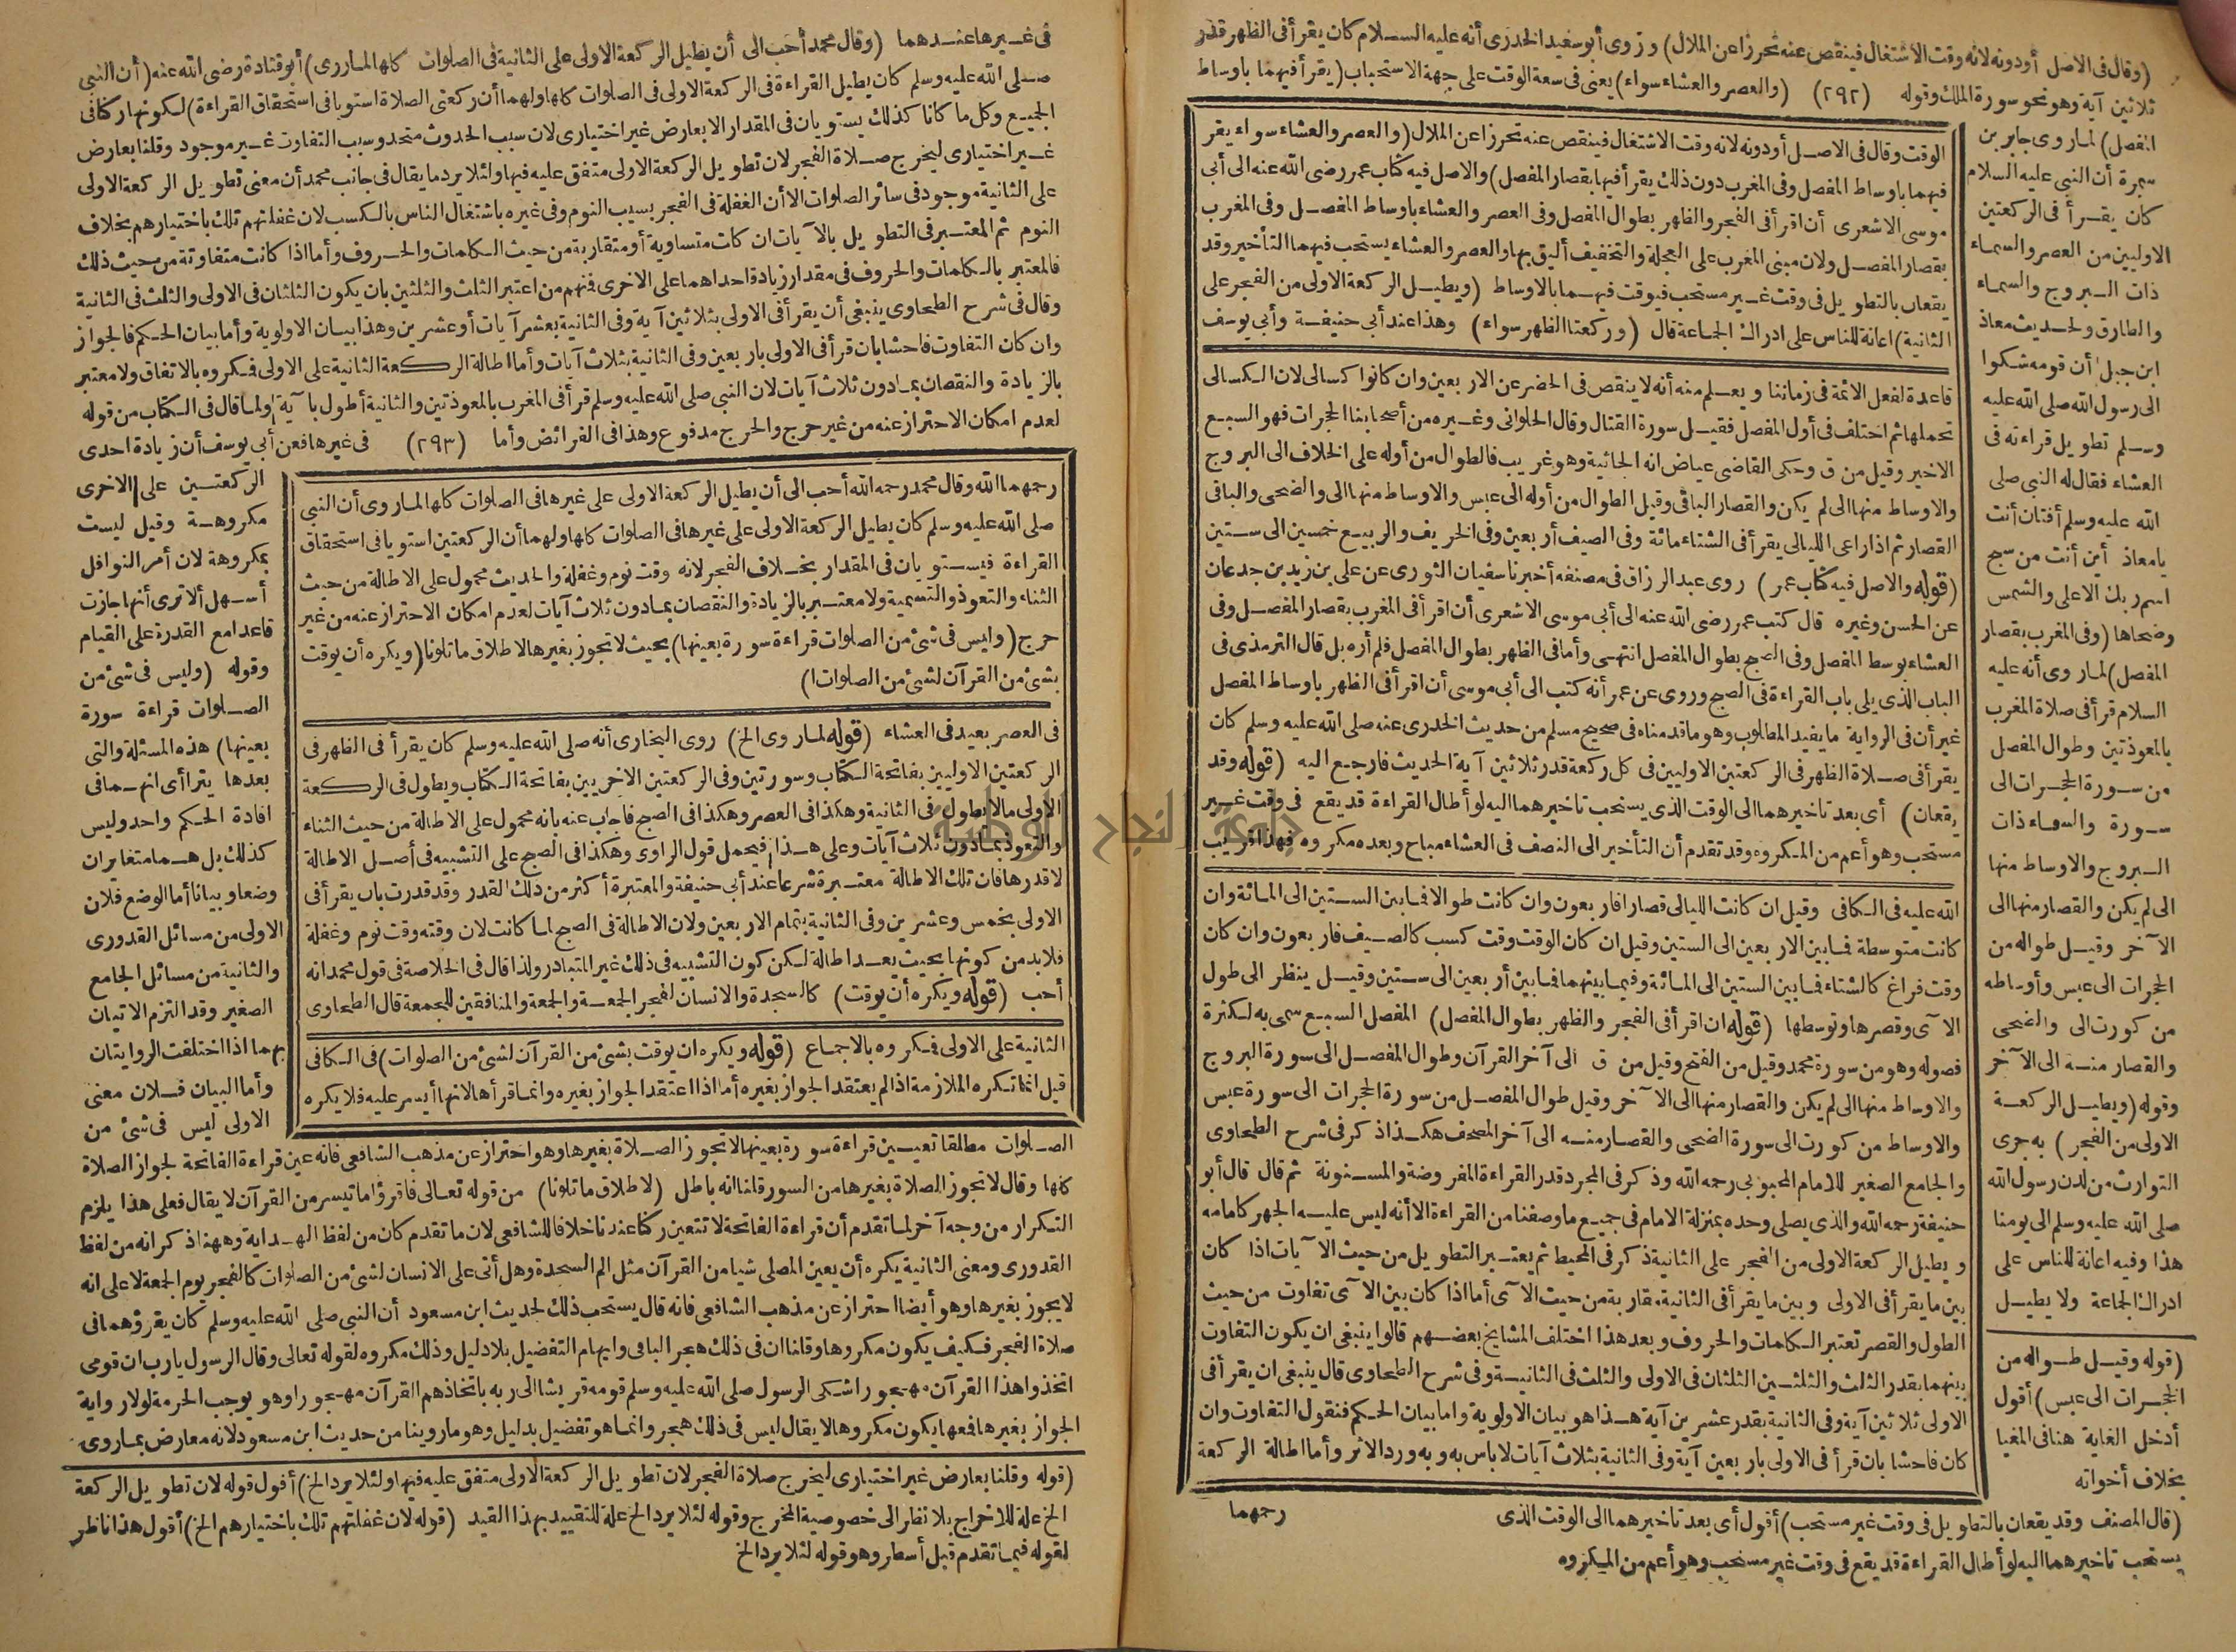 (وقال فى الاصل أو دونه لانه وقت الاشتغال فينقص عنه تحرزا عن الملال) وروى أبو سعيد الخدرى أنه عليه السلام كان يقرأ فى الظهر قدر
ثلاثين آية وهو نحو سورة الملك وقوله (٢٩٢) (والعصر والعشاء سواء) يعنى فى سعة الوقت على جهة الاستحباب (يقرأ فيهما باوساط
المفصل) لما روى جابر بن
سمرة أن النبى عليه السلام
كان يقرأ فى الركعتين
الاوليين من العصر والسماء
ذات البروج والسماء
والطارق ولحديث معاذ
ابن جبل أن قومه شكوا
الى رسول الله صلى الله عليه
وسلم تطويل قراءته فى
العشاء فقال له النبى صلى
الله عليه وسلم أفتان أنت
يا معاذ أين أنت من سبح
اسم ربك الاعلى والشمس
وضحاها (وفى المغرب بقصار
المفصل) لما روى أنه عليه
السلام قرأ فى صلاة المغرب
بالمعوذتين وطوال المفصل
من سورة الحجرات الى
سورة والسماء ذات
البروج والاوساط منها
الى لم يكن والقصار منها الى
الآخر وقيل طواله من
الحجرات الى عبس وأوساطه
من كورت الى والضحى
والقصار منه الى الآخر
وقوله (ويطيل الركعة
الاولى من الفجر) به جرى
التوارث من لدن رسول الله
صلى الله عليه وسلم الى يومنا
هذا وفيه اعانة للناس على
ادراك الجماعة ولا يطيل
الوقت وقال فى الاصل أو دونه لانه وقت الاشتغال فينقص عنه تحرزا عن الملال (والعصر والعشاء سواء يقرأ
فيهما باوساط المفصل وفى المغرب دون ذلك يقرأ فيها بقصار المفصل) والاصل فيه كتاب عمر رضى الله عنه الى أبى
موسى الاشعرى أن اقرأ فى الفجر والظهر بطوال المفصل وفى العصر والعشاء باوساط المفصل وفى المغرب
بقصار المفصل ولان مبنى المغرب على العجلة والتخفيف أليق بها والعصر والعشاء يستحب فيهما التأخير وقد
يقعان بالتطويل فى وقت غير مستحب فيوقت فيهما بالاوساط (ويطيل الركعة الاولى من الفجر على
الثانية) اعانة للناس على ادراك الجماعة قال (وركعتا الظهر سواء) وهذا عند أبى حنيفة وأبى يوسف
قاعدة لفعل الائمة فى زماننا ويعلم منه أنه لا ينقص فى الحضر عن الاربعين وان كانوا كسالى لان الكسالى
تحملها ثم اختلف فى أول المفصل فقيل سورة القتال وقال الحلوانى وغيره من أصحابنا الحجرات فهو السبع
الاخير وقيل من ق وحكى القاضى عياض انه الجاثية وهو غريب فالطوال من أوله على الخلاف الى البروج
والاوساط منها الى لم يكن والقصار الباقى وقيل الطوال من أوله الى عبس والاوساط منها الى والضحى والباقى
القصار ثم اذا راعى الليالى يقرأ فى الشتاء مائة وفى الصيف أربعين وفى الخريف والربيع خمسين الى ستين
(قوله والاصل فيه كتاب عمر) روى عبد الرزاق فى مصنفه أخبرنا سفيان الثورى عن على بن زيد بن جدعان
عن الحسن وغيره قال كتب عمر رضى الله عنه الى أبى موسى الاشعرى أن اقرأ فى المغرب بقصار المفصل وفى
العشاء بوسط المفصل وفى الصبح بطوال المفصل انتهى وأما فى الظهر بطوال المفصل فلم أره بل قال الترمذى فى
الباب الذى يلى باب القراءة فى الصبح وروى عن عمر أنه كتب الى أبى موسى أن اقرأ فى الظهر باوساط المفصل
غير أن فى الرواية ما يفيد المطلوب وهو ما قدمناه فى صحيح مسلم من حديث الخدرى عنه صلى الله عليه وسلم كان
يقرأ فى صلاة الظهر فى الركعتين الاوليين فى كل ركعة قدر ثلاثين آية الحديث فارجع اليه (قوله وقد
يقعان) أى بعد تاخيرهما الى الوقت الذى يستحب تاخيرهما اليه لو أطال القراءة قد يقع فى وقت غير
مستحب وهو أعم من المكروه وقد تقدم أن التأخير الى النصف فى العشاء مباح وبعده مكروه فهذا قريب
الله عليه فى الكافى وقيل ان كانت الليالى قصارا فاربعون وان كانت طوالا فما بين الستين الى المائة وان
كانت متوسطة فما بين الاربعين الى الستين وقيل ان كان الوقت وقت كسب كالصيف فاربعون وان كان
وقت فراغ كالشتاء فما بين الستين الى المائة وفيما بينهما فما بين أربعين الى ستين وقيل ينظر الى طول
الآى وقصرها وتوسطها (قوله ان اقرأ فى الفجر والظهر بطوال المفصل) المفصل السبع سمى به لكثرة
فصوله وهو من سورة محمد وقيل من الفتح وقيل من ق الى آخر القرآن وطوال المفصل الى سورة البروج
والاوساط منها الى لم يكن والقصار منها الى الآخر وقيل طوال المفصل من سورة الحجرات الى سورة عبس
والاوساط من كورت الى سورة الضحى والقصار منه الى آخر المصحف هكذا ذكر فى شرح الطحاوى
والجامع الصغير للامام المحبوبى رحمه الله وذكر فى المجرد قدر القراءة المفروضة والمسنونة ثم قال قال أبو
حنيفة رحمه الله والذى يصلى وحده بمنزلة الامام فى جميع ما وصفنا من القراءة الا أنه ليس عليه الجهر كامامه
ويطيل الركعة الاولى من الفجر على الثانية ذكر فى المحيط ثم يعتبر التطويل من حيث الآيات اذا كان
بين ما يقرأ فى الاولى وبين ما يقرأ فى الثانية مقاربة من حيث الآى أما اذا كان بين الآى تفاوت من حيث
الطول والقصر تعتبر الكلمات والحروف وبعد هذا اختلف المشايخ بعضهم قالوا ينبغى ان يكون التفاوت
بينهما بقدر الثلث والثلثين الثلثان فى الاولى والثلث فى الثانية وفى شرح الطحاوى قال ينبغى ان يقرأ فى
الاولى ثلاثين آية وفى الثانية بقدر عشرين آية هذا هو بيان الاولوية واما بيان الحكم فنقول التفاوت وان
كان فاحشا بان قرأ فى الاولى باربعين آية وفى الثانية بثلاث آيات لا باس به وبه ورد الاثر وأما اطالة الركعة
رحمهما
(قوله وقيل طواله من
الحجرات الى عبس) أقول
أدخل الغاية هنا فى المغيا
بخلاف أخواته
(قال المصنف وقد يقعان بالتطويل فى وقت غير مستحب) أقول أى بعد تاخيرهما الى الوقت الذى
يستحب تاخيرهما اليه لو أطال القراءة قد يقع فى وقت غير مستحب وهو أعم من المكروه
فى غيرها عندهما (وقال محمد أحب الى أن يطيل الركعة الاولى على الثانية فى الصلوات كلها لما روى) أبو قتادة رضى الله عنه (أن النبى
صلى الله عليه وسلم كان يطيل القراءة فى الركعة الاولى فى الصلوات كلها ولهما أن ركعتى الصلاة استويا فى استحقاق القراءة) لكونها ركنا فى
الجميع وكل ما كانا كذلك يستويان فى المقدار الا بعارض غير اختيارى لان سبب الحدوث متحد وسبب التفاوت غير موجود وقلنا بعارض
غير اختيارى ليخرج صلاة الفجر لان تطويل الركعة الاولى متفق عليه فيها ولئلا يرد ما يقال فى جانب محمد أن معنى تطويل الركعة الاولى
على الثانية موجود فى سائر الصلوات الا أن الغفلة فى الفجر بسبب النوم وفى غيره باشتغال الناس بالكسب لان غفلتهم تلك باختيارهم بخلاف
النوم ثم المعتبر فى التطويل بالآيات ان كانت متساوية أو متقاربة من حيث الكلمات والحروف وأما اذا كانت متفاوتة من حيث ذلك
فالمعتبر بالكلمات والحروف فى مقدار زيادة احداهما على الاخرى فنهم من اعتبر الثلث والثلثين بان يكون الثلثان فى الاولى والثلث فى الثانية
وقال فى شرح الطحاوى ينبغى أن يقرأ فى الاولى بثلاثين آية وفى الثانية بعشر آيات أو عشرين وهذا بيان الاولوية وأما بيان الحكم فالجواز
وان كان التفاوت فاحشا بان قرأ فى الاولى باربعين وفى الثانية بثلاث آيات وأما اطالة الركعة الثانية على الاولى فمكروه بالاتفاق ولا معتبر
بالزيادة والنقصان بما دون ثلاث آيات لان النبى صلى الله عليه وسلم قرأ فى المغرب بالمعوذتين والثانية أطول بآية ولما قال فى الكتاب من قوله
لعدم امكان الاحتراز عنه من غير حرج والحرج مدفوع وهذا فى الفرائض وأما (٢٩٣) فى غيرها فعن أبى يوسف أن زيادة احدى
الركعتين على الاخرى
مكروهة وقيل ليست
بمكروهة لان أمر النوافل
أسهل ألا ترى أنها جازت
قاعدا مع القدرة على القيام
وقوله (وليس فى شئ من
الصلوات قراءة سورة
بعينها) هذه المسئلة والتى
بعدها يتراأى انهما فى
افادة الحكم واحد وليس
كذلك بل هما متغايران
وضعا وبيانا أما الوضع فلان
الاولى من مسائل القدورى
والثانية من مسائل الجامع
الصغير وقد التزم الاتيان
بهما اذا اختلفت الروايتان
وأما البيان فلان معنى
الاولى ليس فى شئ من
رحمهما الله وقال محمد رحمه الله أحب الى أن يطيل الركعة الاولى على غيرها فى الصلوات كلها لما روى أن النبى
صلى الله عليه وسلم كان يطيل الركعة الاولى على غيرها فى الصلوات كلها ولهما أن الركعتين استويا فى استحقاق
القراءة فيستويان فى المقدار بخلاف الفجر لانه وقت نوم وغفلة والحديث محمول على الاطالة من حيث
الثناء والتعوذ والتسمية ولا معتبر بالزيادة والنقصان بما دون ثلاث آيات لعدم امكان الاحتراز عنه من غير
حرج (وليس فى شئ من الصلوات قراءة سورة بعينها) بحيث لا تجوز بغيرها لاطلاق ما تلونا (ويكره أن يوقت
بشئ من القرآن لشئ من الصلوات)
فى العصر بعيد فى العشاء (قوله لما روى الخ) روى البخارى أنه صلى الله عليه وسلم كان يقرأ فى الظهر فى
الركعتين الاوليين بفاتحة الكتاب وسورتين وفى الركعتين الاخريين بفاتحة الكتاب ويطول فى الركعة
الاولى ما لا يطول فى الثانية وهكذا فى العصر وهكذا فى الصبح فاجاب عنه بانه محمول على الاطالة من حيث الثناء
والتعوذ بما دون ثلاث آيات وعلى هذا فيحمل قول الراوى وهكذا فى الصبح على التشبيه فى أصل الاطالة
لا قدرها فان تلك الاطالة معتبرة شرعا عند أبى حنيفة والمعتبرة أكثر من ذلك القدر وقد قدرت بان يقرأ فى
الاولى بخمس وعشرين وفى الثانية بتمام الاربعين ولان الاطالة فى الصبح لما كانت لان وقته وقت نوم وغفلة
فلا بد من كونها بحيث يعد اطالة لكن كون التشبيه فى ذلك غير المتبادر ولذا قال فى الخلاصة فى قول محمد انه
أحب (قوله ويكره أن يوقت) كالسجدة والانسان لفجر الجمعة والجمعة والمنافقين للجمعة قال الطحاوى
الثانية على الاولى فمكروه بالاجماع (قوله ويكره ان يوقت بشئ من القرآن لشئ من الصلوات) فى الكافى
قيل انما تكره الملازمة اذا لم يعتقد الجواز بغيره أما اذا اعتقد الجواز بغيره وانما قرأها لانها أيسر عليه فلا يكره
الصلوات مطلقا تعيين قراءة سورة بعينها لا تجوز الصلاة بغيرها وهو احتراز عن مذهب الشافعى فانه عين قراءة الفاتحة لجواز الصلاة
كلها وقال لا تجوز الصلاة بغيرها من السور قلنا انه باطل (لاطلاق ما تلونا) من قوله تعالى فاقرؤا ما تيسر من القرآن لا يقال فعلى هذا يلزم
التكرار من وجه آخر لما تقدم أن قراءة الفاتحة لا تتعين ركنا عندنا خلافا للشافعى لان ما تقدم كان من لفظ الهداية وههنا ذكر انه من لفظ
القدورى ومعنى الثانية يكره أن يعين المصلى شيا من القرآن مثل الم السجدة وهل أتى على الانسان لشئ من الصلوات كالفجر يوم الجمعة لا على انه
لا يجوز بغيرها وهو أيضا احتراز عن مذهب الشافعى فانه قال يستحب ذلك لحديث ابن مسعود أن النبى صلى الله عليه وسلم كان يقرؤهما فى
صلاة الفجر فكيف يكون مكروها وقلنا ان فى ذلك هجر الباقى وايهام التفضيل بلا دليل وذلك مكروه لقوله تعالى وقال الرسول يا رب ان قومى
اتخذوا هذا القرآن مهجورا شكى الرسول صلى الله عليه وسلم قومه قريشا الى ربه باتخاذهم القرآن مهجورا وهو يوجب الحرمة لولا رواية
الجواز بغيرها فعها يكون مكروها لا يقال ليس فى ذلك هجر وانما هو تفضيل بدليل وهو ما روينا من حديث ابن مسعود لانه معارض بما روى
(قوله وقلنا بعارض غير اختيارى ليخرج صلاة الفجر لان تطويل الركعة الاولى متفق عليه فيها ولئلا يرد الخ) أقول قوله لان تطويل الركعة
الخ علة للاخراج بلا نظر الى خصوصية المخرج وقوله لئلا يرد الخ علة للتقييد بهذا القيد (قوله لان غفلتهم تلك باختيارهم الخ) أقول هذا ناظر
لقوله فيما تقدم قبل أسطر وهو قوله لئلا يرد الخ
جامعة النجاح الوطنية